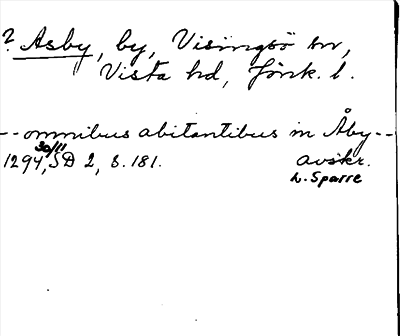 ? Asby, by, Visingsö sn,
Vista hd, Jönk. l.
-- omnibus abitantibus in Åby --
1294 30/11, SD 2, s. 181. avskr.
L. Sparre